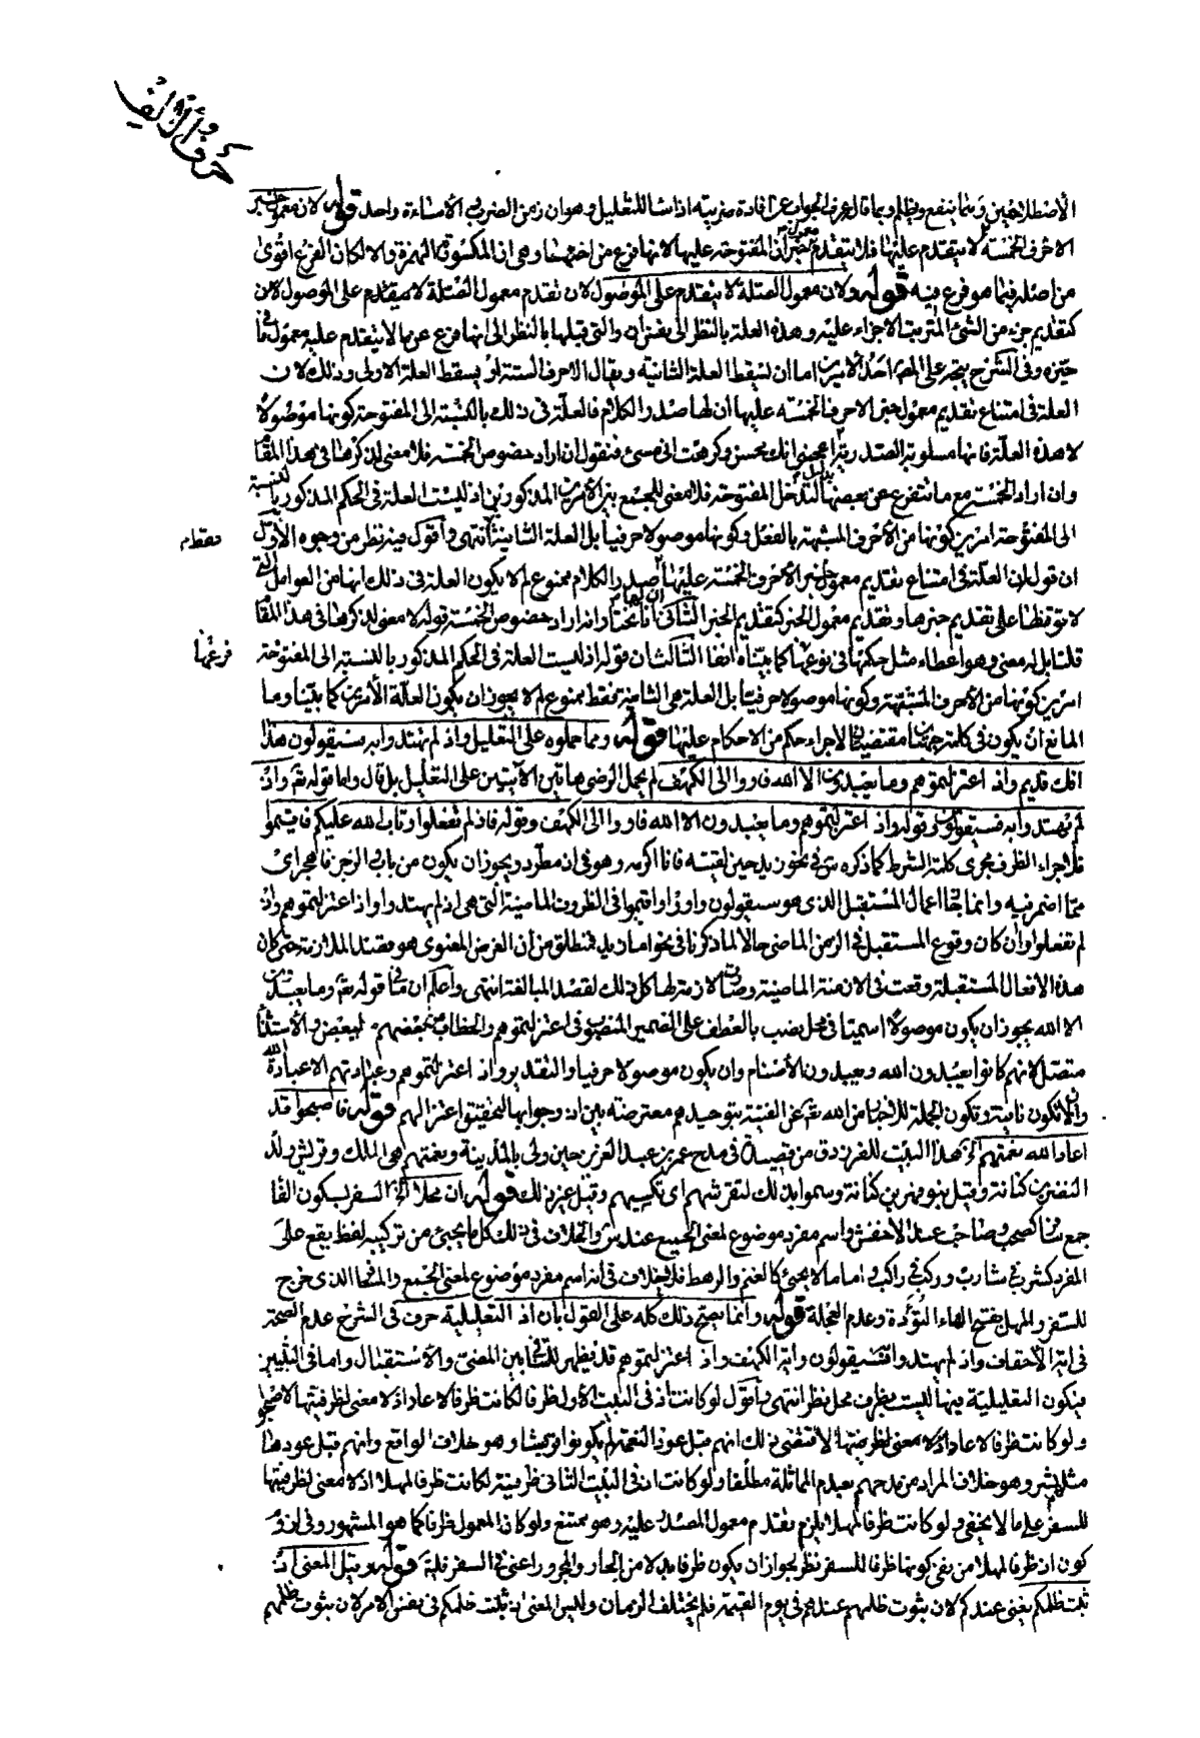 حرف الألف
الاصطلاحيين وبما ينفع ويظلم وبما قال عرف الجواب عن افادة ضربته اذ اساء للتعليل وهو ان زمن الضرب والأساءة واحد قوله لان معمول خبر
الاحرف الخمسة لا يتقدم عليها فلا يتقدم معمول خبر ان المفتوحة عليها لانها فرع من اختها وهى ان المكسورة الهمزة والا لكان الفرع اقوى
من اصله فيما هو فرع فيه قوله ولان معمول الصلة لا يتقدم على الموصول لان تقدم معمول الصلة لا يتقدم على الموصول لان
كتقديم جزء من الشئ المترتب الاجزاء عليه وهذه العلة بالنظر الى نفس ان والتى قبلها بالنظر الى انها فرع عن ما لا يتقدم عليه معمول ما فى
حيزه وفى الشرح يتجه على المص احد الامرين اما ان تسقط العلة الثانية ويقال الاحرف الستة او يسقط العلة الاولى وذلك لان
العلة فى امتناع تقديم معمول خبر الاحرف الخمسة عليها ان لها صدر الكلام فالعلة فى ذلك بالنسبة الى المفتوحة كونها موصولا
لا هذه العلة فانها مسلوبة الصدرية اعجبنى انك تحسن وكرهت انى مسئ فنقول ان اراد خصوص الخمسة فلا معنى لذكرها فى هذا المقام
وان اراد الخمسة مع ما تتفرع عن بعضها بدليل المفتوحة فلا معنى للجمع بين الأمرين المذكورين اذ ليست العلة فى الحكم المذكور بالنسبة
الى المفتوحة امرين كونها من الأحرف المشبهة بالفعل وكونها موصولا حرفيا بل العلة الثانية انتهى وأقول فيه نظر من وجوه الأول
فقط م
ان قوله ان العلة فى امتناع تقديم معمول خبر الأحرف الخمسة عليها ان لها صدر الكلام ممنوع لم لا يكون العلة فى ذلك انها من العوامل التى
لا قوة لها على تقديم خبرها وتقديم معمول الخبر كتقديم الخبر الثانى انا نختار انه اراد خصوص الخمسة قوله لا معنى لذكرها فى هذا المقام
قلنا بل له معنى وهو اعطاء مثل حكمها فى نوعها كما بيناه آنفا الثالث ان قوله اذ ليست العلة فى الحكم المذكور بالنسبة الى المفتوحة
فرعها
امرين كونها من الأحرف المشبهة وكونها موصولا حرفيا بل العلة هى الثانية فقط ممنوع لم لا يجوز ان يكون العلة الأمرين كما بينا وما
المانع ان يكون فى كلمة جهتان مقتضيتان لاجراء حكم من الاحكام عليها قوله ومما حملوه على التعليل واذ لم يهتدوا به سيقولون هذا
افك قديم واذ اعتزلتموهم وما يعبدون الا الله فاووا الى الكهف لم يحمل الرضى هاتين الآيتين على التعليل بل قال واما قوله تع واذ
لم يهتدوا به فسيقولون وقوله واذ اعتزلتموهم وما يعبدون الا الله فاووا الى الكهف وقوله فاذ لم تفعلوا وتاب الله عليكم فاقيموا
فلاجراء الظرف مجرى كلمة الشرط كما ذكره س فى نحو زيد حين لقيته فانا اكرمه وهو فى اذ مطرد ويجوز ان يكون من باب والرجز فاهجر اى
مما اضمر فيه وانما جاز اعمال المستقبل الذى هو سيقولون وأووا واقيموا فى الظروف الماضية التى هى اذ لم يهتدوا واذ اعتزلتموهم واذ
لم تفعلوا وان كان وقوع المستقبل فى الزمن الماضى محالا لما ذكرنا فى نحو اما زيد فمنطلق من ان الغرض المعنوى هو قصد الملازمة حتى كان
هذه الافعال المستقبلة وقعت فى الازمنة الماضية وصارت لازمة لها كل ذلك لقصد المبالغة انتهى واعلم ان ما فى قوله تع وما يعبدون
الا الله يجوز ان يكون موصولا اسميا فى محل نصب بالعطف على الضمير المنصوب فى اعتزلتموهم والخطاب من بعضهم لبعض والاستثناء
متصل لانهم كانوا يعبدون الله ويعبدون الأصنام وان يكون موصولا حرفيا والتقدير واذ اعتزلتموهم وعبادتهم الا عبادة الله
وان يكون نافية وتكون الجملة للاخبار من الله تع عن الفتية بتوحيدهم معترضة بين اذ وجوابها لتحقيق اعتزالهم قوله فاصبحوا قد
اعاد الله نعمتهم آه هذا البيت للفرزدق من قصيدة فى مدح عمر بن عبد العزيز حين ولى بالمدينة ونعمتهم هى الملك وقريش ولد
النضر بن كنانة وقيل بنو فهر بن كنانة وسموا بذلك لتقرشهم اى تكسبهم وقيل غير ذلك قوله ان محلا آه السفر بسكون الفا
جمع سافر كصحب وصاحب عند الاخفش واسم مفرد موضوع لمعنى الجمع عند س والخلاف فى ذلك كل ما يجئ من تركيبه لفظ يقع على
المفرد كشرب فى شارب وركب فى راكب واما ما لا يجئ كالغنم والرهط فلا خلاف فى انه اسم مفرد موضوع لمعنى الجمع والسفر الذى خرج
للسفر والمهل بفتح الهاء التؤدة وعدم العجلة قوله وانما يصح ذلك كله على القول بان اذ التعليلية حرف فى الشرح عدم الصحة
فى اية الأحقاف واذ لم يهتدوا فسيقولون واية الكهف واذ اعتزلتموهم قد يظهر للتنافى بين المضى والأستقبال واما فى البيتين
فيكون التعليلية فيها ليست بظرف محل نظر انتهى وأقول لو كانت اذ فى البيت الأول ظرفا لكانت ظرفا لاعاد اذ لا معنى لظرفيتها لاصبحوا
ولو كانت ظرفا لاعاد اذ لا معنى لظرفيتها لاقتضى ذلك انهم قبل عود النعمة لم يكونوا قريشا وهو خلاف الواقع وانهم قبل عودها
مثلهم بشر وهو خلاف المراد من مدحهم بعدم المماثلة مطلقا ولو كانت اذ فى البيت الثانى ظرفية لكانت ظرفا لمهلا اذ لا معنى لظرفيتها
للسفر على ما لا يخفى ولو كانت ظرفا لمهلا يلزم تقدم معمول المصدر عليه وهو ممتنع ولو كان المعمول ظرفا كما هو المشهور وفى لزوم
كون اذ ظرفا لمهلا من نفى كونها ظرفا للسفر نظر لجواز ان يكون ظرفا بدلا من الجار والمجرور اعنى فى السفر فليتأمل قوله وقيل المعنى اذ
ثبت ظلمكم يعنى عندكم لان ثبوت ظلمهم عندهم فى يوم القيمة فلم يختلف الزمان وليس المعنى اذ ثبت ظلمكم فى نفس الامر لان ثبوت ظلمهم